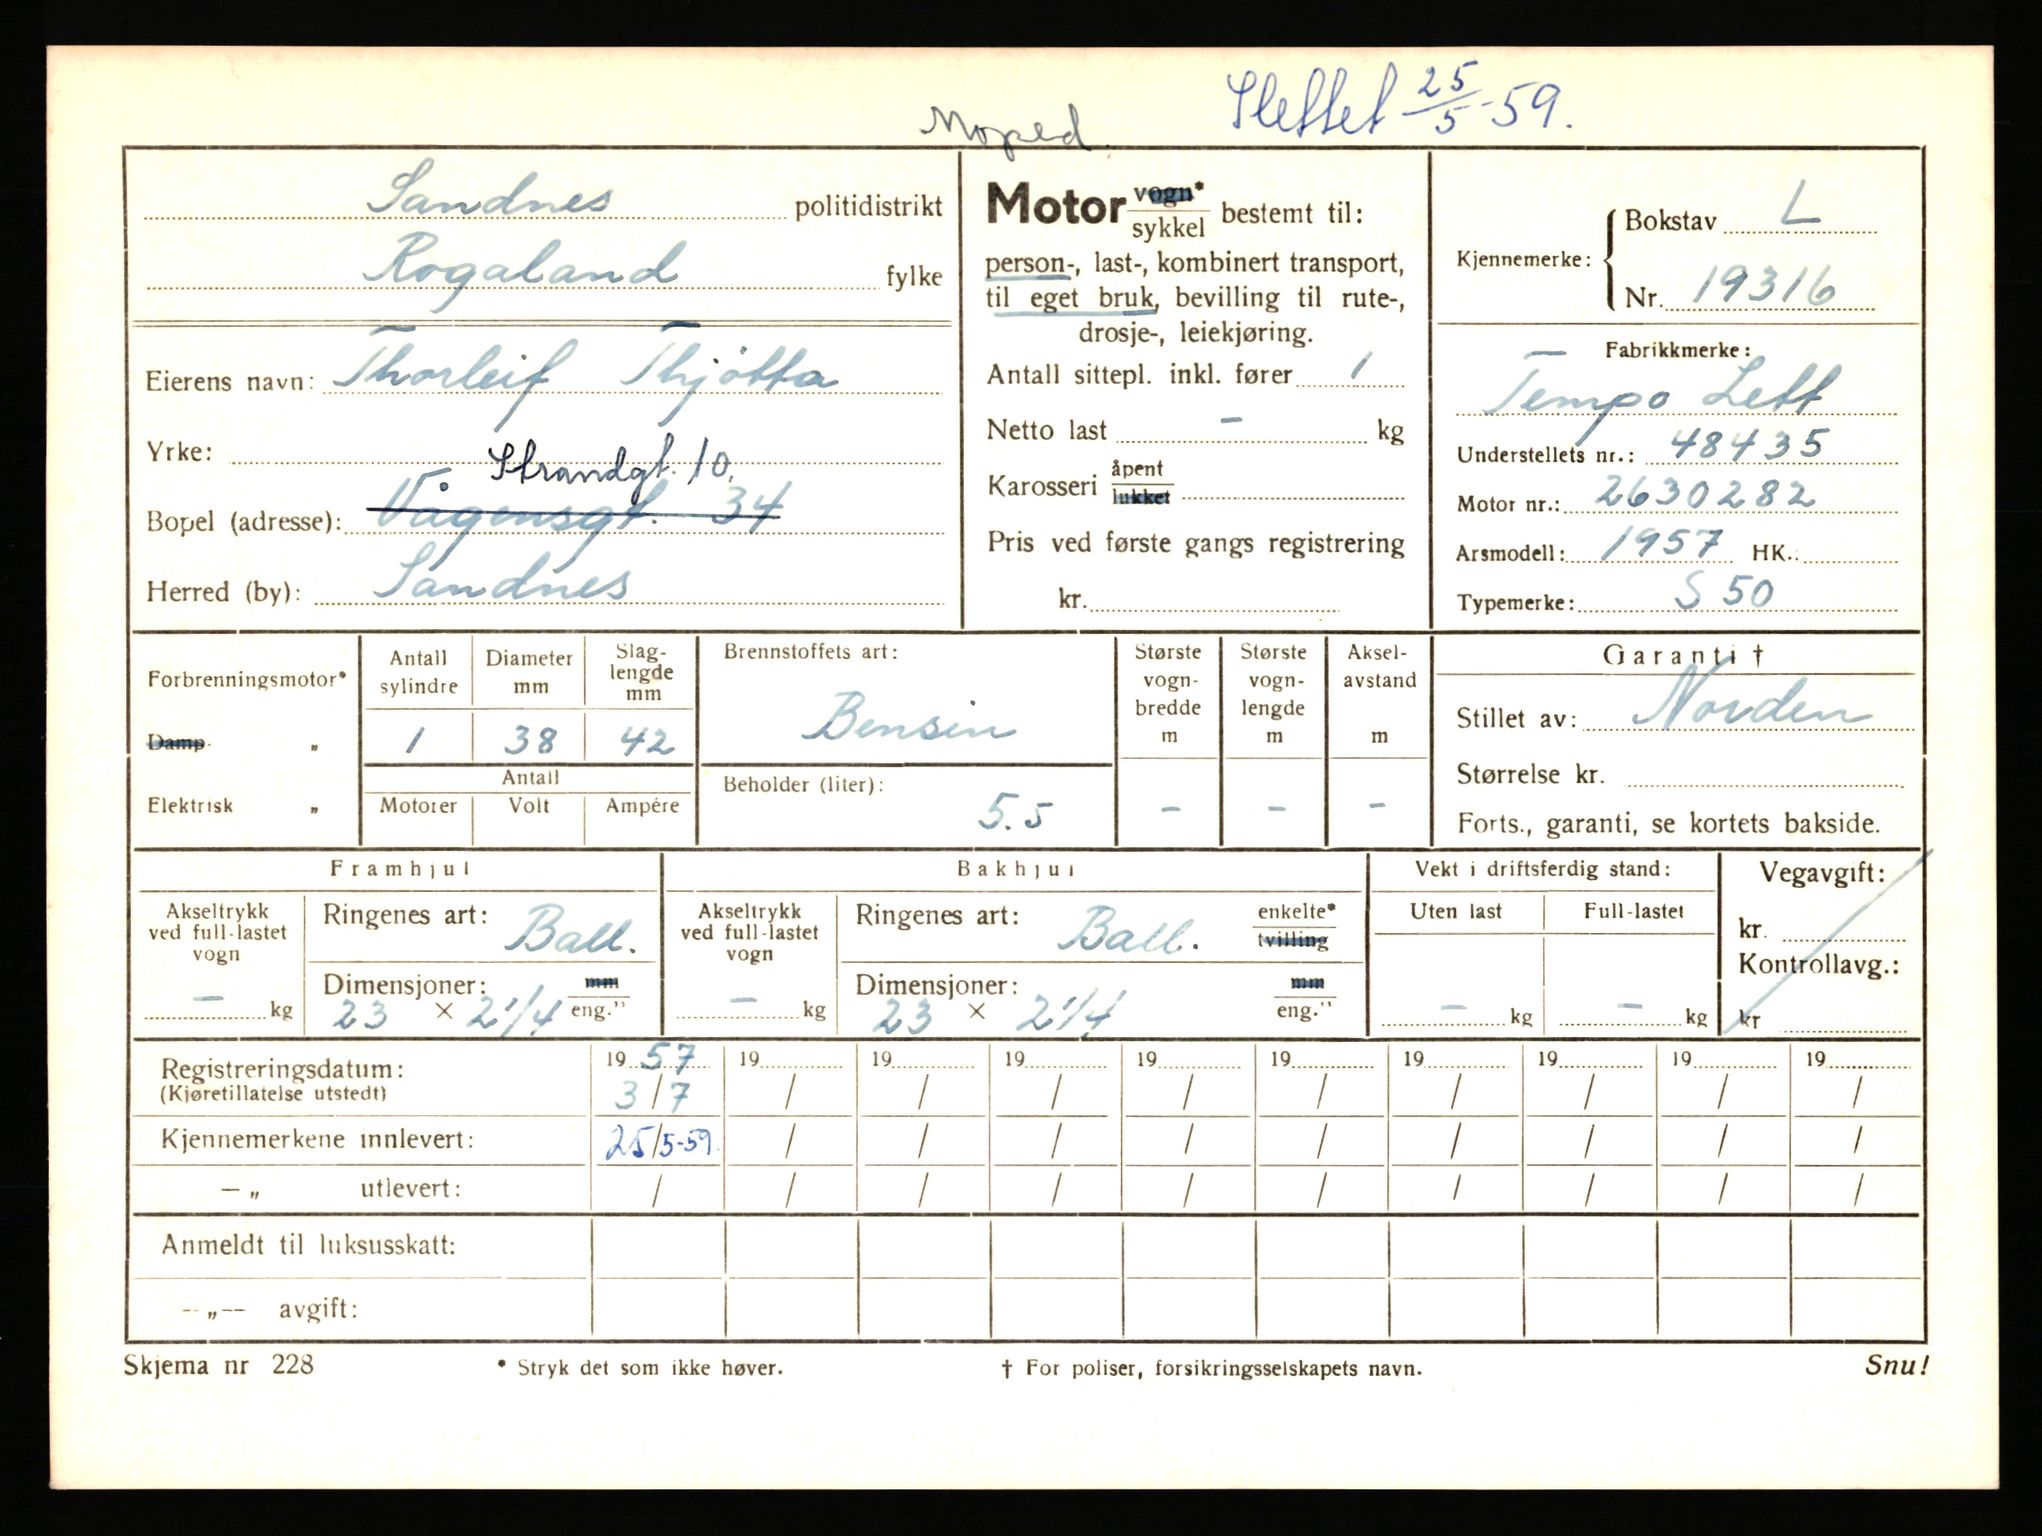 Moped Slettet 25/5-59.
Sandnes politidistrikt
Rogaland fylke
Eierens navn: Thorleif Thjötta
Yrke:
Strandgt. 10.
Bopel (adresse): Vågensgt. 34
Herred (by): Sandnes
Motor vogn*/sykkel bestemt til:
person-, last-, kombinert transport,
til eget bruk, bevilling til rute-,
drosje-, leiekjøring.
Antall sittepl. inkl. fører 1
Netto last - kg
Karosseri åpent/lukket
Pris ved første gangs registrering
kr.
Kjennemerke: Bokstav L
Nr. 19316
Fabrikkmerke:
Tempo Lett
Understellets nr.: 48435
Motor nr.: 2630282
Årsmodell: 1957 HK.:
Typemerke: S 50
Forbrenningsmotor*
Damp „
Elektrisk „
Antall sylindre
1
Diameter mm
38
Slag-lengde mm
42
Antall
Motorer Volt Ampére
Brennstoffets art:
Bensin
Beholder (liter):
5.5
Største vogn-bredde m
-
Største vogn-lengde m
-
Aksel-avstand m
-
Garanti †
Stillet av: Norden
Størrelse kr.
Forts., garanti, se kortets bakside.
Framhjul
Akseltrykk ved full-lastet vogn
- kg
Ringenes art: Ball.
Dimensjoner: mm/eng."
23 × 2 1/4
Bakhjul
Akseltrykk ved full-lastet vogn
- kg
Ringenes art: Ball. enkelte*/tvilling
Dimensjoner: mm/eng."
23 × 2 1/4
Vekt i driftsferdig stand:
Uten last Full-lastet
- kg - kg
Vegavgift:
kr.
Kontrollavg.:
kr
Registreringsdatum: 19 57 19 19 19 19 19 19 19 19 19
(Kjøretillatelse utstedt) 3/7 / / / / / / / / /
Kjennemerkene innlevert: 25/5-59. / / / / / / / / /
— „ utlevert: / / / / / / / / / /
Anmeldt til luksusskatt:
— „ — avgift:
Skjema nr 228 * Stryk det som ikke høver. † For poliser, forsikringsselskapets navn. Snu!